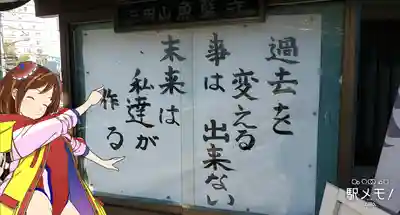 三田山 魚籃寺
過去を
変える
事は出来ない
未来は
私達が
作る
駅メモ!